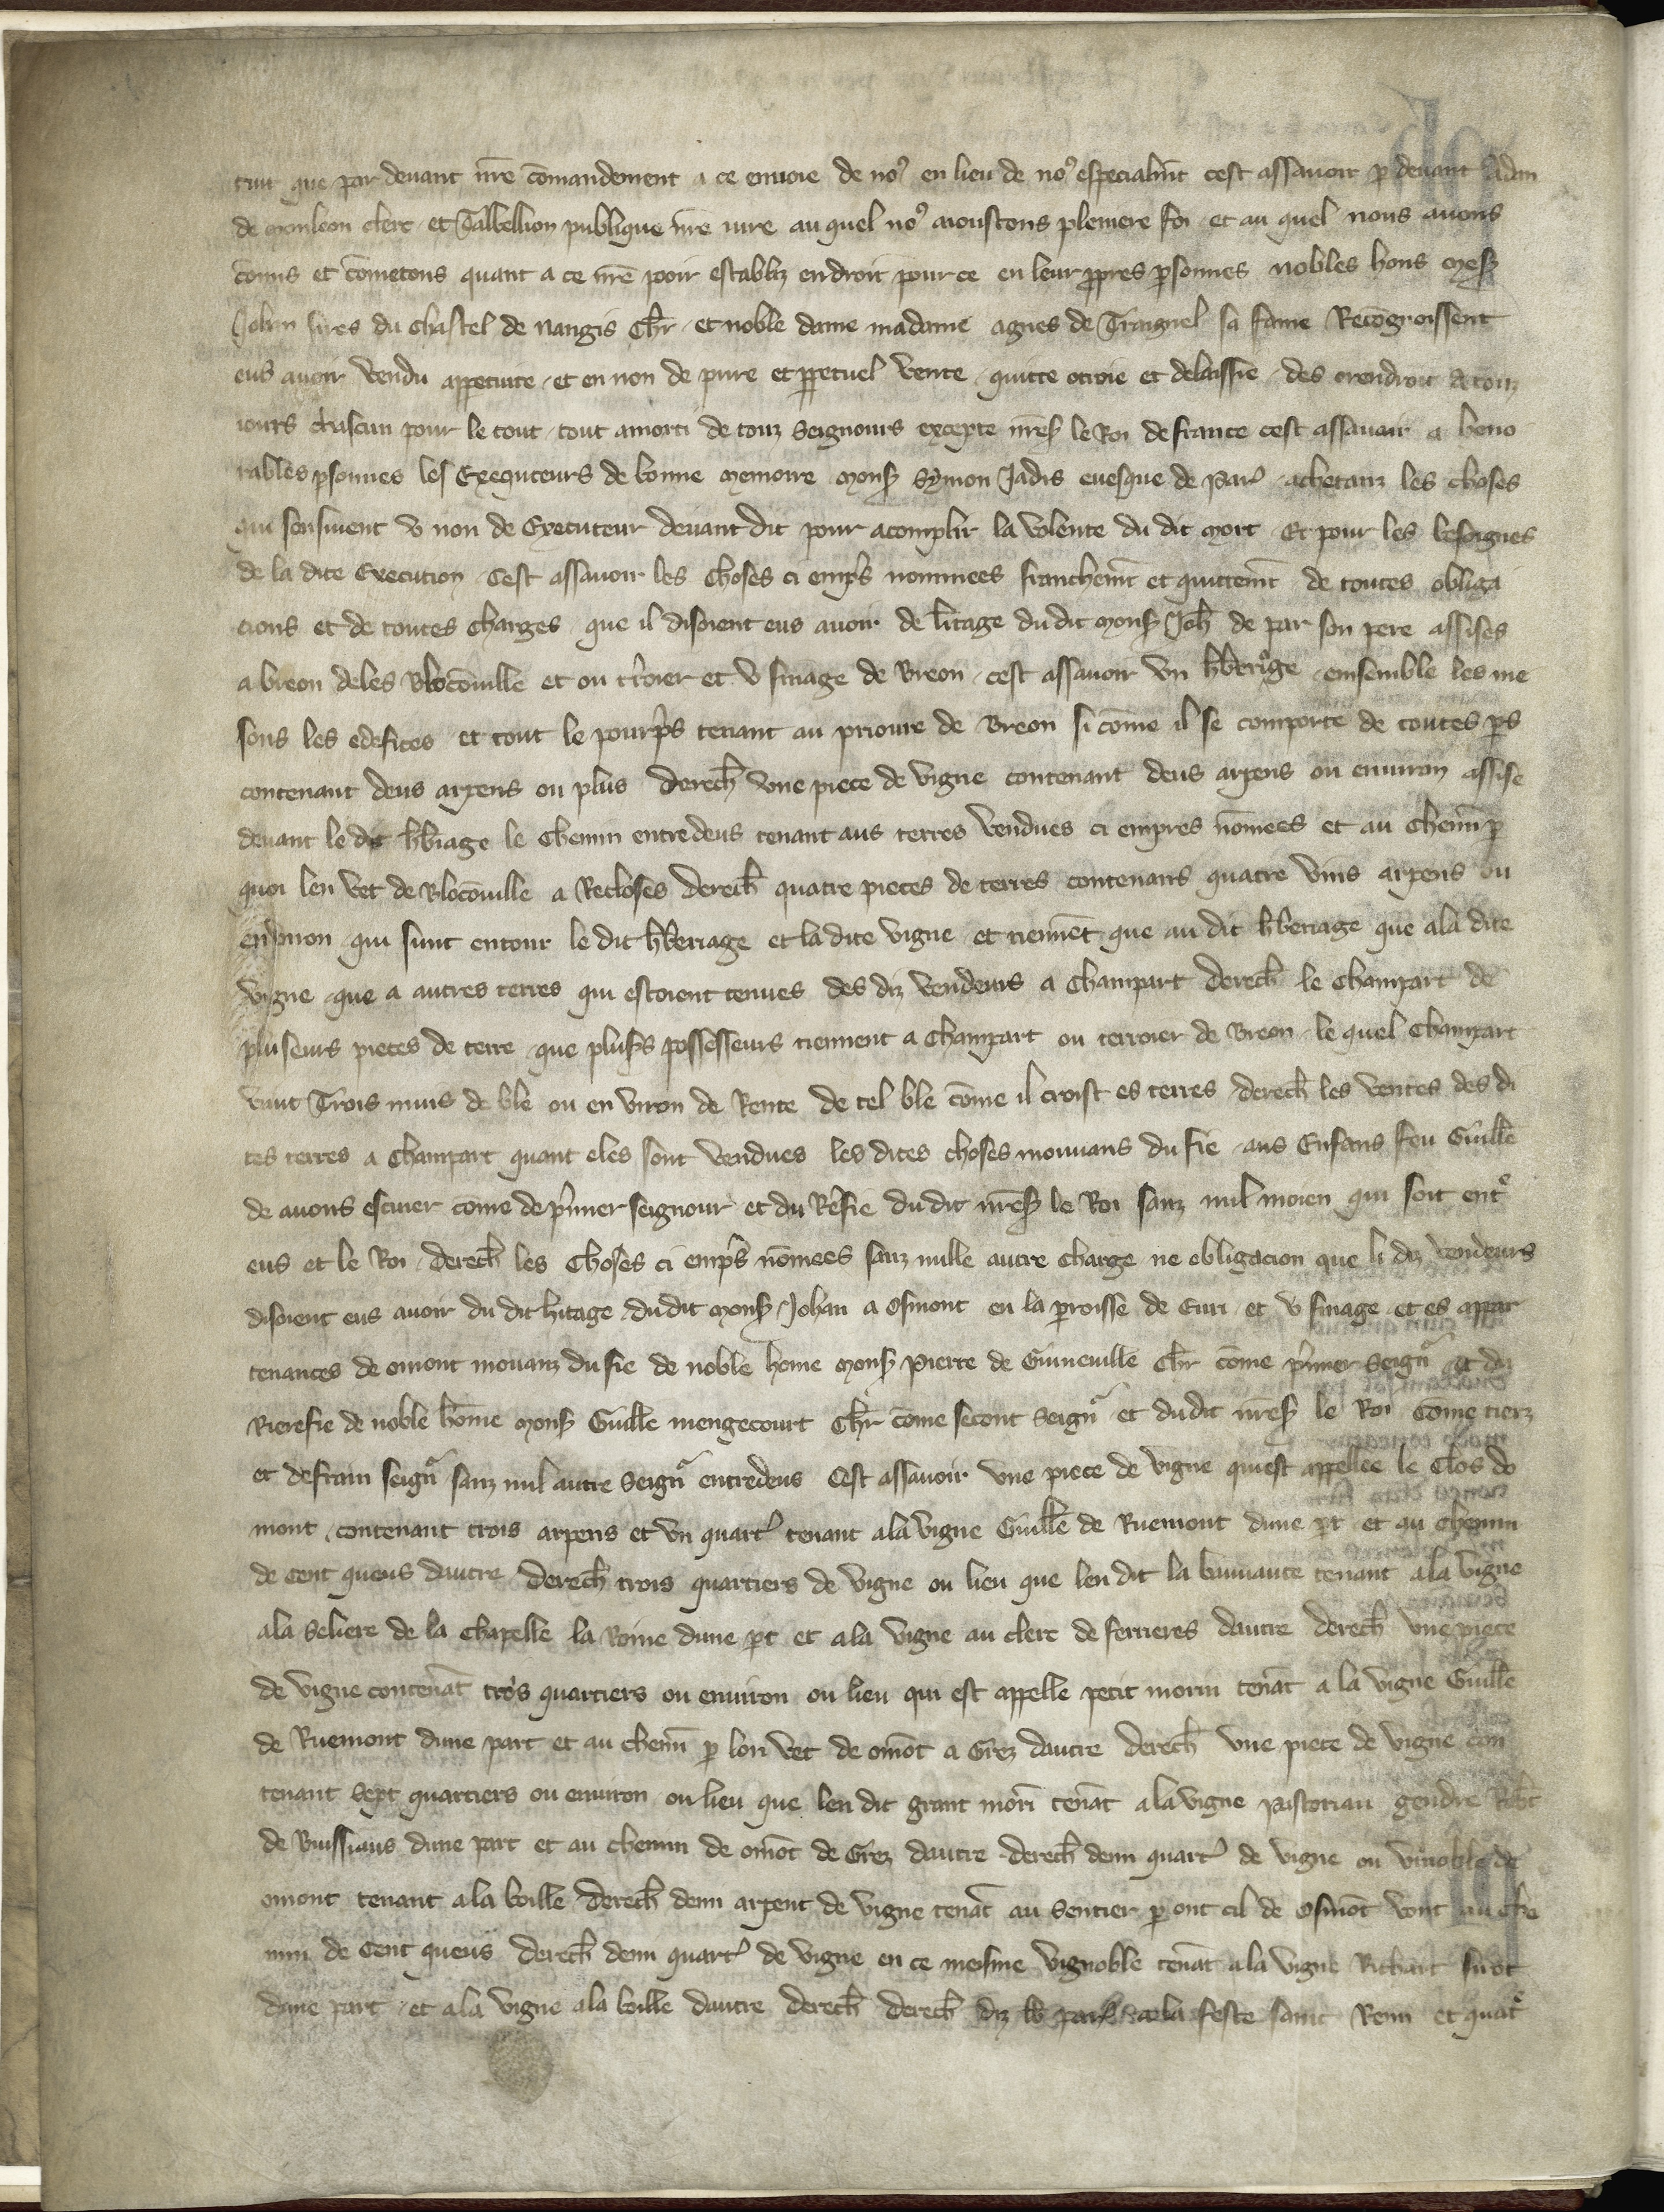 tuit que par devant nr̄e cōmandement a ce envoie de noꝰ en lieu de noꝰ especialmt̄ cest assavoir p̱ devant Adan
de monleon clerc et Tabellion publique nr̄e iure au quel noꝰ aioustons pleniere foi et au quel nous avons
cōmis et cōmetons quant a ce nr̄e pooir establiz en droit pour ce en leur ꝓpres ꝑsonnes nobles hons mesꝭ
Johan sires du Chastel de Nangis Chr̄ et noble dame madame Agnes de Traignel sa fame Recōgnoissent
eus avoir vendu a ꝑpetuite et en non de pure et ꝑpetuel vente quitte otroie et delaissie des orendroit a touz
iours chascun pour le tout tout amorti de touz Seigneurs excepte nr̄esꝭ le Roi de france cest assavoir a heno
rables ꝑsonnes les Exequteurs de bonne memoire monsꝭ Symon Jadis evesque de Parꝭ achetanz les choses
qui sensiuent u non de Executeur devant dit pour acomplir la volente du dit mort Et pour les besoignes
de la dite Execution Cest assavoir les choses ci emp̃s nommees franchemt̄ et quittemt̄ de toutes obliga
cions et de toutes charges que il disoient eus avoir de lr̄itage du dit monsꝭ Joh̄ de par son pere assises
a breon deles Blocōuille et ou tr̄oier et u finage de Breon cest assavoir un hb̄erige ensemble les me
sons les edefices et tout le pourp̃s tenant au prioure de Breon si cōme il se comporte de toutes ꝑs
contenant deus arpens ou plus Derech̄ une piece de vigne contenant deus arpens ou environ assise
devant le dit hb̄iage le chemin entredeus tenant aus terres vendues ci empres nōmees et au chemī ꝑ
quoi len vet de Blocōuille a Recloses Derech̄ quatre pieces de terres contenans quatre vins arpens ou
environ qui sunt entour le dit hb̄eriage et la dite vigne et tiennēt que au dit hb̄eriage que a la dite
vigne que a autres terres qui estoient tenues des diz vendeurs a Champart Derech̄ le Champart de
pluseurs pieces de terre que plusꝭs possesseurs tiennent a Champart ou terroier de Breon le quel Champart
vaut Trois muis de ble ou en viron de Rente de tel ble cōme il croist es terres Derech̄ les ventes des di
tes terres a Champart quant eles sont vendues les dites choses mouvans du fie aus Enfans feu Guill̄e
de avons escuier come de p̃mier seignour et du Refie du dit nr̄esꝭ le Roi sanz nul moien qui soit entͤ
eus et le Roi Derech̄ les choses ci emp̃s nōmees sanz nulle autre charge ne obligacion que li diz vendeurs
disoient eus avoir du dit hr̄itage du dit monsꝭ Johan a Osmont en la ꝑroisse de Euri et u finage et es appar
tenances de omont mouvanz du fie de noble home monsꝭ Pierre de Guineuille Chr̄ cōme p̃mier Seignr̄ et du
Rierefie de noble hōme monsꝭ Guille mengecourt Chr̄ cōme secont Seignr̄ et dudit nr̄esꝭ le Roi Come tierz
et desrain seignr̄ sanz nul autre Seignr̄ entredeus Cest assavoir une piece de vigne qui est appellee le Clos do
mont contenant trois arpens et un quartꝭ tenant a la vigne Guill̄e de Ruemont dune ꝑt et au chemin
de Cent queus dautre Derech̄ trois quartiers de vigne ou lieu que len dit la tenant a la vigne
a la Seliere de la Chapelle la Roine dune ꝑt et a la vigne au clerc de ferrieres dautre Derech̄ une piece
de vigne contenāt trois quartiers ou environ ou lieu qui est appelle petit morin tenāt a la vigne Guill̄e
de Ruemont dune part et au chemī ꝑ lon vet de omōt a Grez dautre Derech̄ une piece de vigne con
tenant Sept quartiers ou environ ou lieu que len dit grant morī tenāt a la vigne Pastoriau gendre Robt̄
de Buissiaus dune part et au chemin de omōt de Grez dautre Derech̄ demi quartꝭ de vigne ou vinoble de
omont tenant a la boille Derech̄ demi arpent de vigne tenāt au Sentier ꝑ ont cil de Osmōt vont au che
min de Cent queus Derech̄ demi quartꝭ de vigne en ce meisme vignoble tenāt a la vigne Richart
dune part et a la vigne a la boille dautre Derech̄ Derech̄ diz lb̄ parꝭ a la feste saint Remi et quatͤ